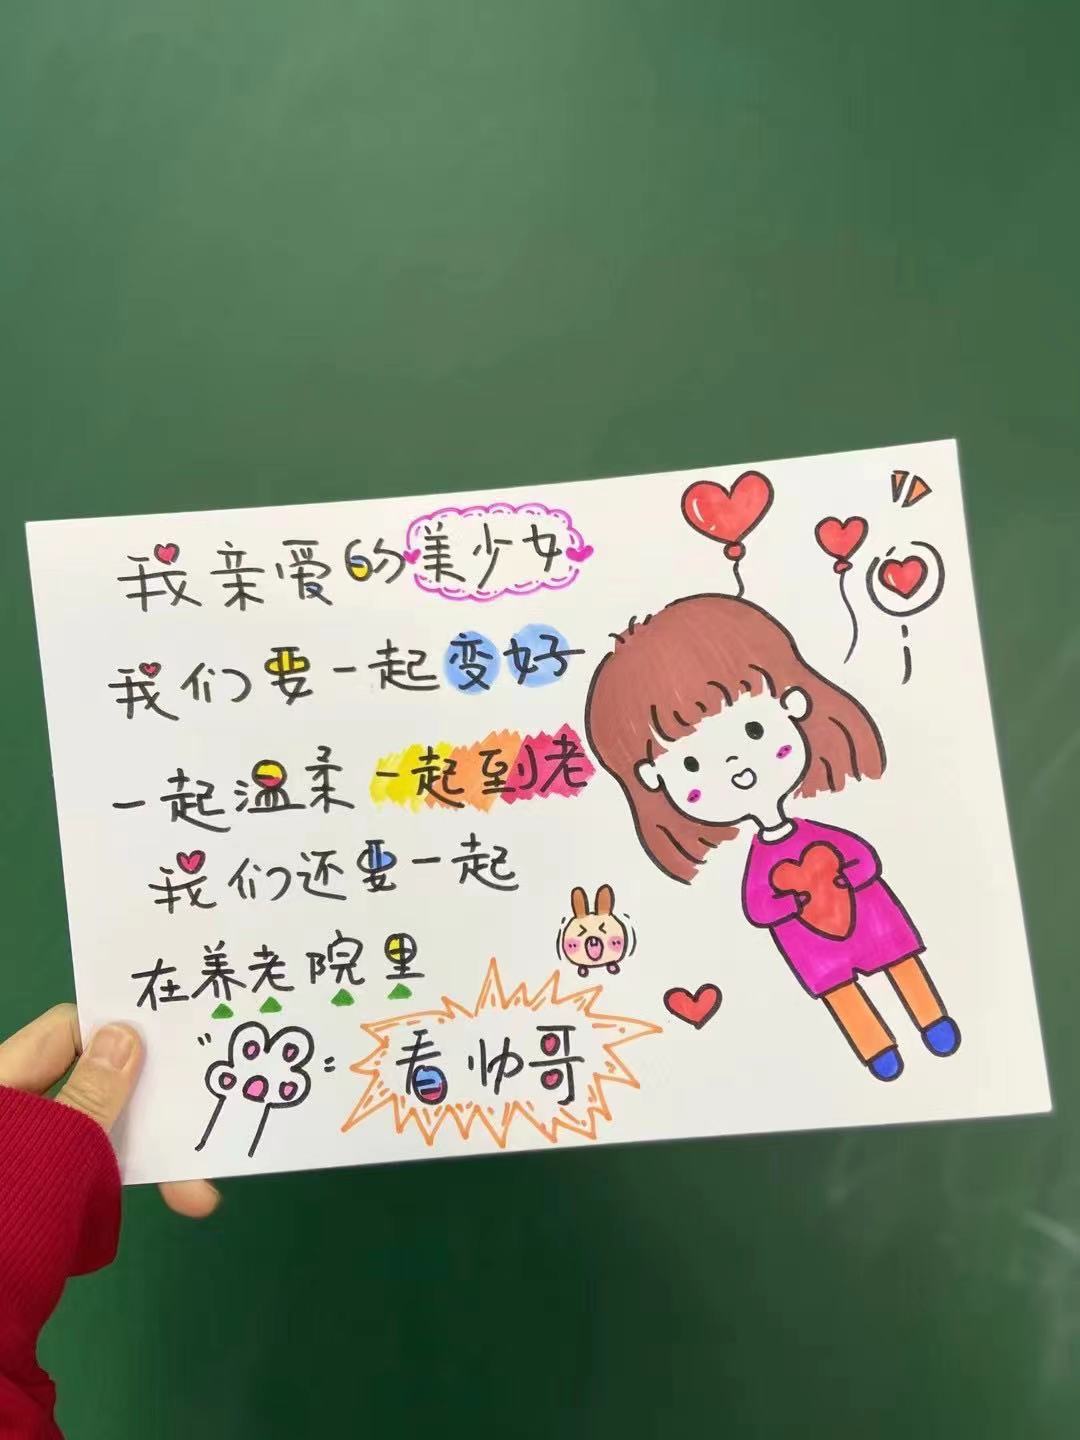 我亲爱的美少女
我们要一起变好
一起温柔一起到老
我们还要一起
在养老院里
看帅哥